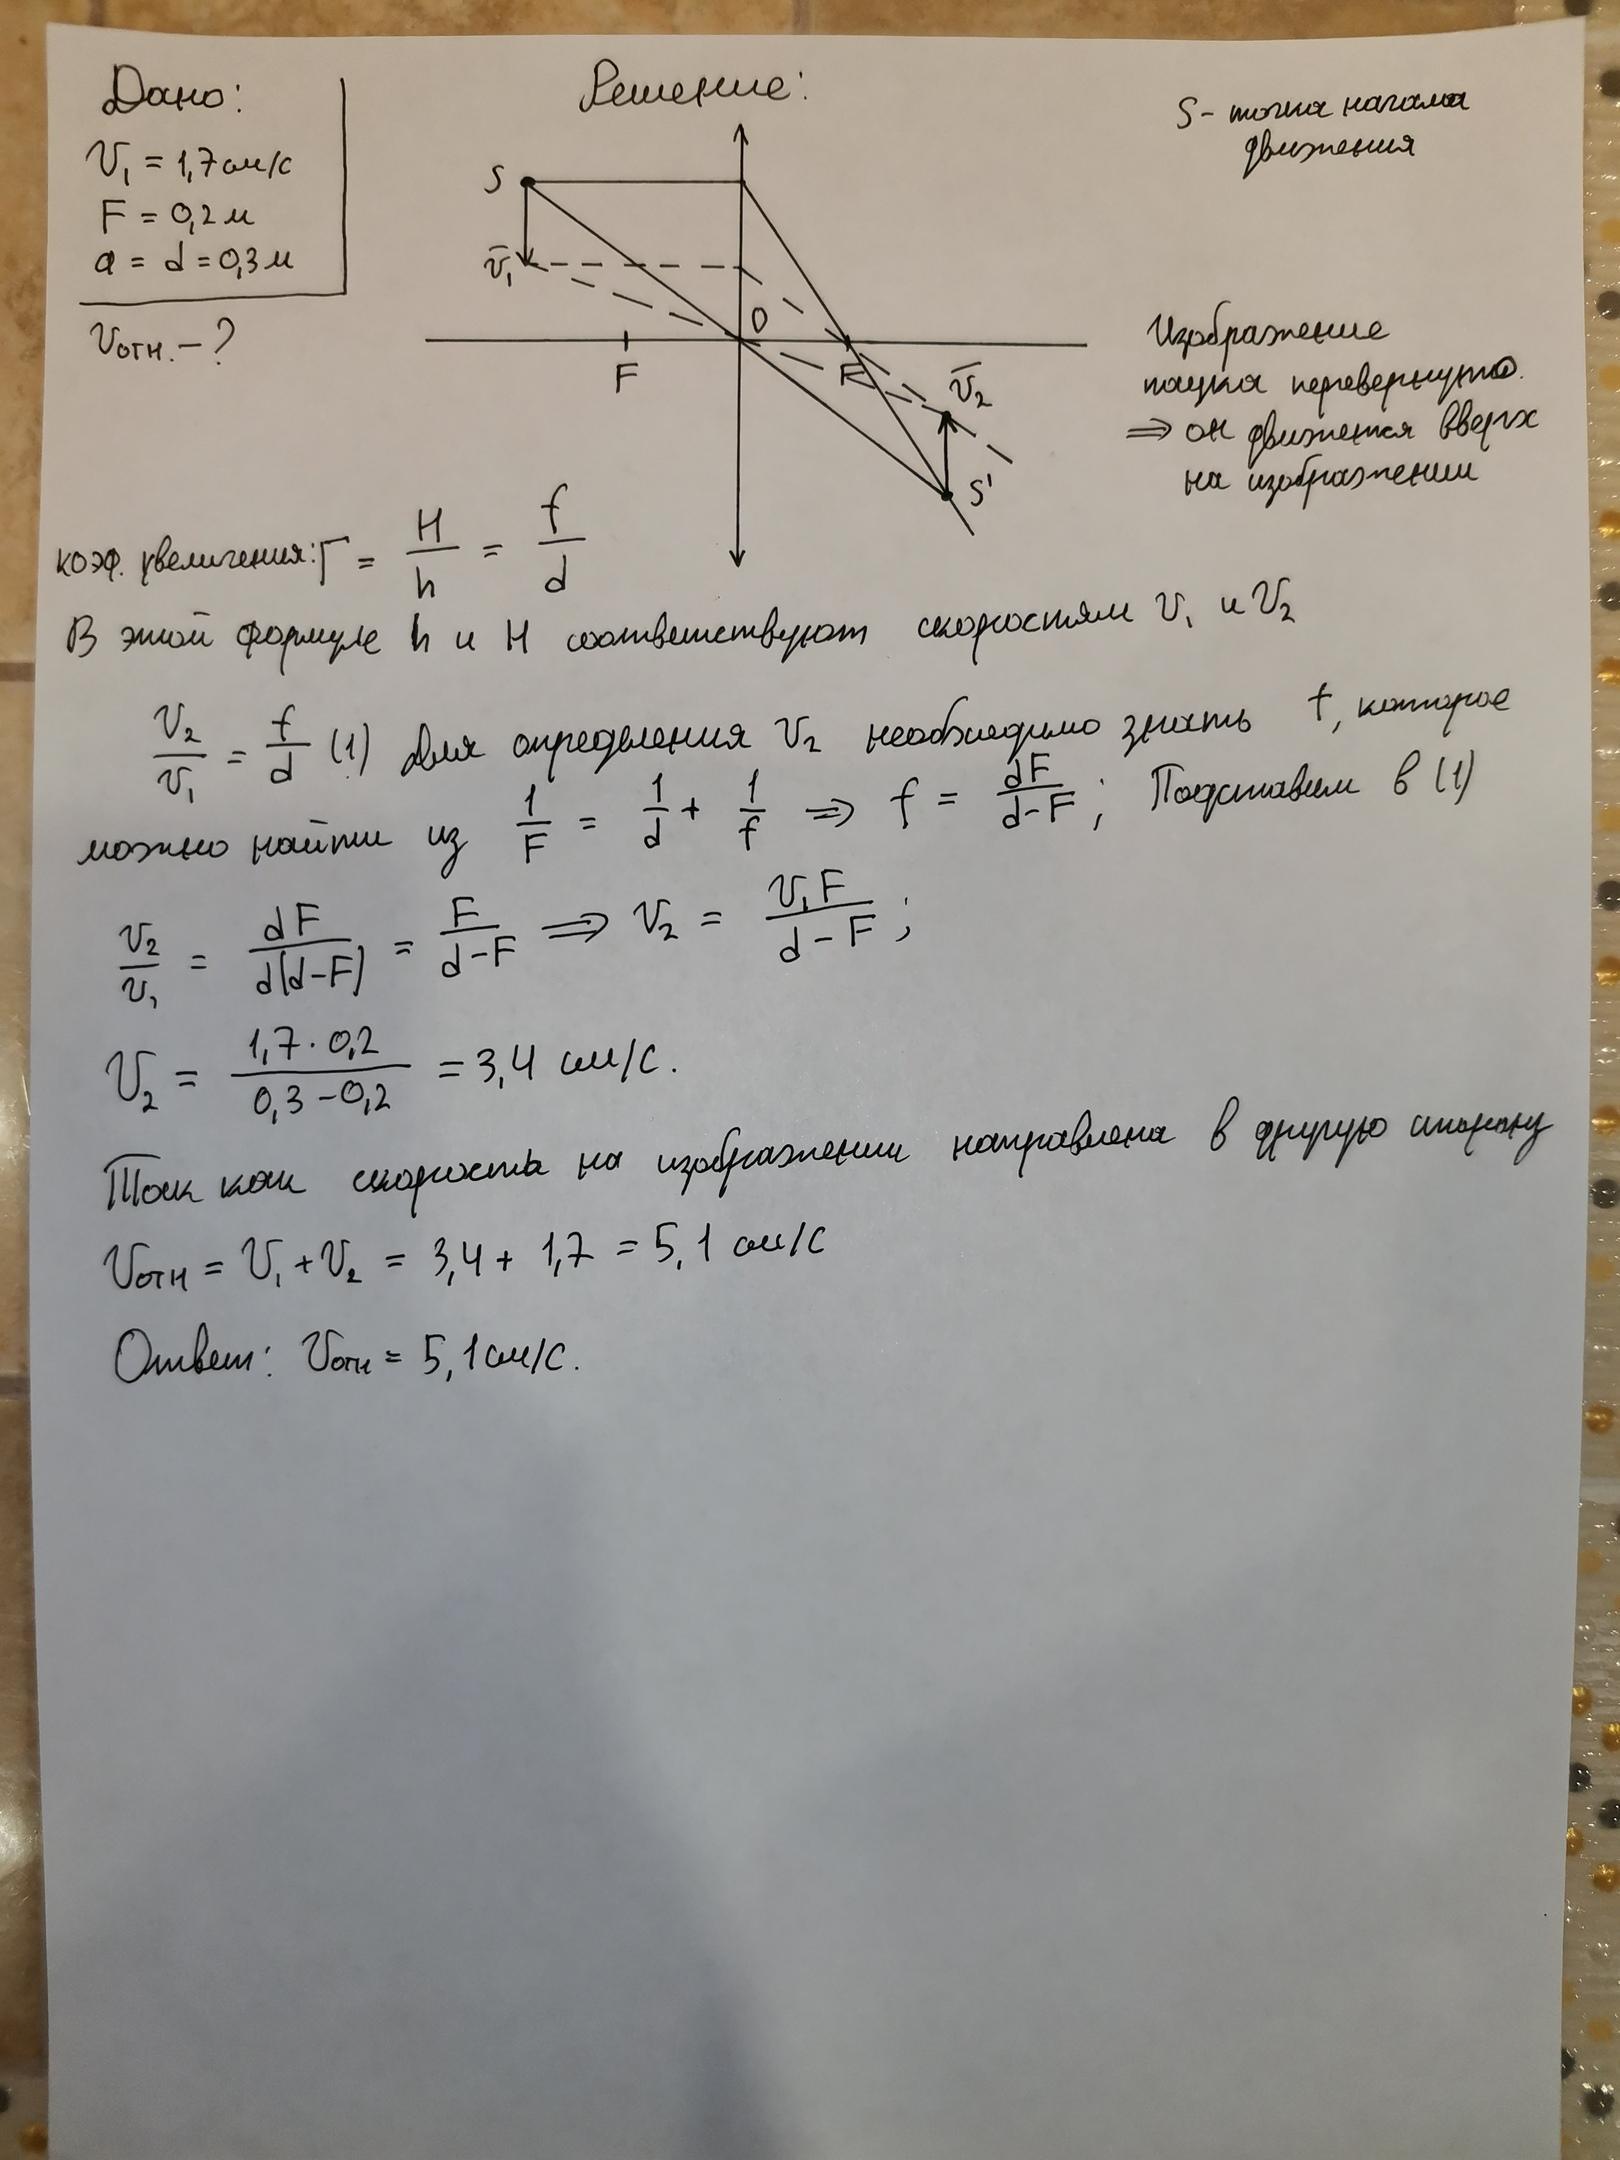 Дано:
V₁ = 1,7 см/с
F = 0,2 м
a = d = 0,3 м
Vотн. - ?
Решение:
S - точка начала
движения
S
V̅₁
F
O
F
V̅₂
S'
Изображение
паука перевернуто.
⇒ он движется вверх
на изображении
коэф. увеличения: Γ = H/h = f/d
В этой формуле h и H соответствуют скоростям V₁ и V₂
V₂/V₁ = f/d (1) Для определения V₂ необходимо знать f, которое
можно найти из 1/F = 1/d + 1/f ⇒ f = dF/(d-F); Подставим в (1)
V₂/V₁ = dF/(d(d-F)) = F/(d-F) ⇒ V₂ = V₁F/(d-F);
V₂ = (1,7 · 0,2)/(0,3 - 0,2) = 3,4 см/с.
Так как скорость на изображении направлена в другую сторону
Vотн = V₁ + V₂ = 3,4 + 1,7 = 5,1 см/с
Ответ: Vотн = 5,1 см/с.